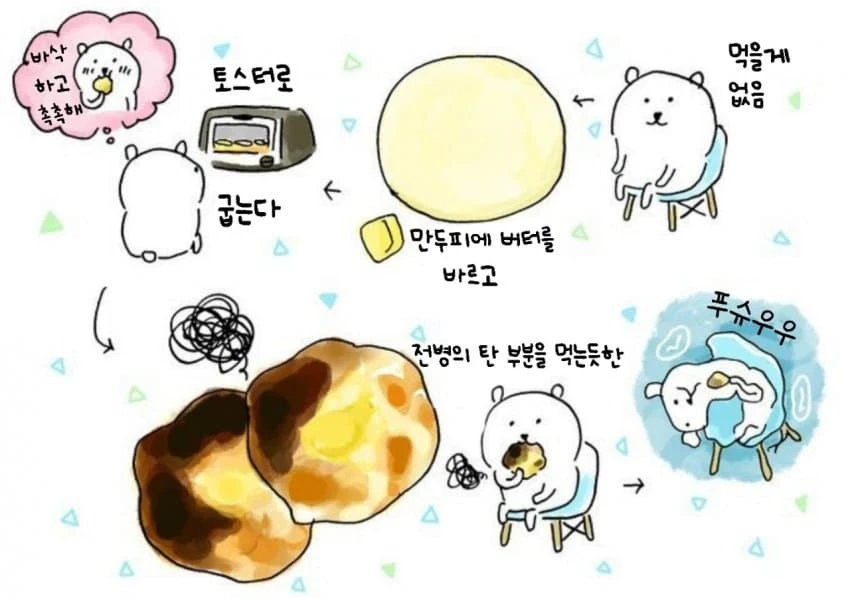 먹을게
없음
만두피에 버터를
바르고
토스터로
굽는다
바삭
하고
촉촉해
전병의 탄 부분을 먹는듯한
푸슈우우